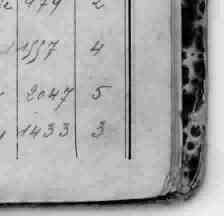 479 2
1557 4
2047 5
1433 3